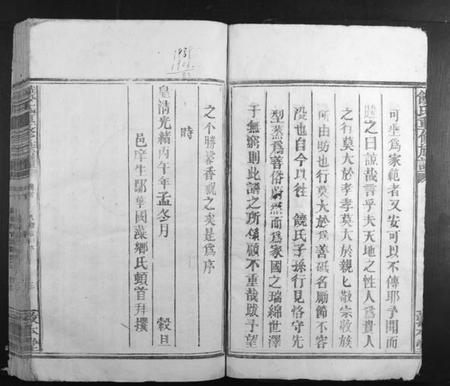 可坐爲家範者又安可以不傳耶予聞而
之曰諒哉言乎夫天地之性人爲貴人
之行莫大於孝孝莫大於親匕敬宗收族
所由昉也行莫大於爲善砥名勵節不容
沒也自今以往饒氏子孫行見恪守先
型蒸爲善俗蔚然而爲家國之瑞綿世澤
于無窮則此譜之所係顧不重哉跋予望
之不勝馨香祝之矣是爲序
時
皇清光緒丙午年孟冬月 穀旦
邑庠生鄒華國藻鄉氏頓首拜撰
饒氏重修族譜
1906